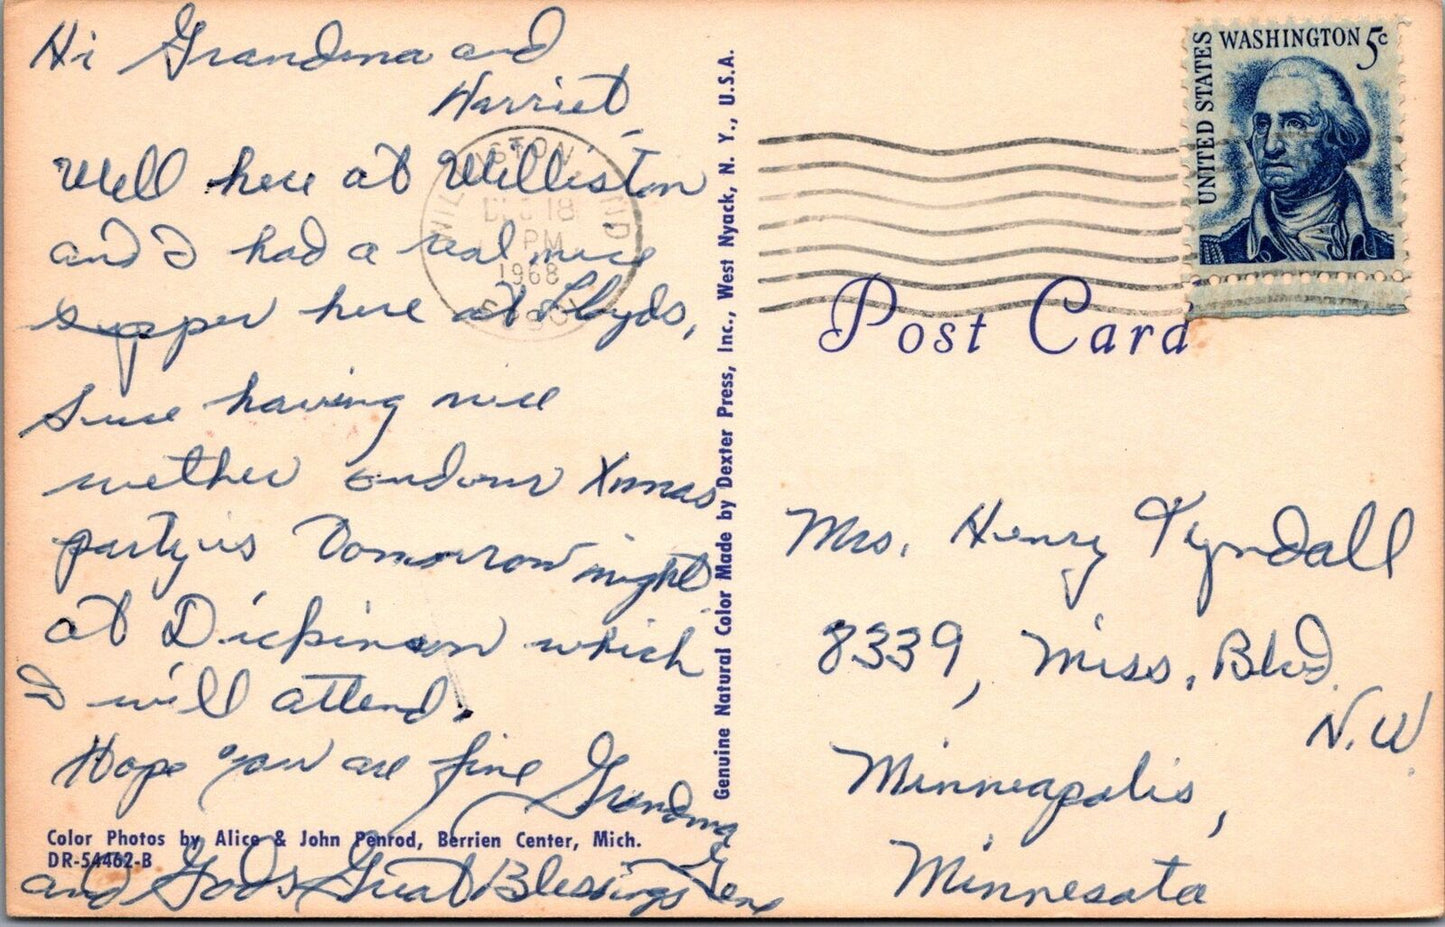 Hi Grandma and
Harriet,
Well here at Williston
and I had a real nice
supper here at Lloyds,
Sure having nice
wether and our Xmas
party is Tomorrow night
at Dickinson which
I will attend.
Hope you are fine Grandma
and God's Great Blessings Gene
Color Photos by Alice & John Penrod, Berrien Center, Mich.
DR-54462-B
Genuine Natural Color Made by Dexter Press, Inc., West Nyack, N. Y., U.S.A.
DEC 18
PM
1968
UNITED STATES
WASHINGTON 5c
Post Card
Mrs. Henry Tyndall
8339, Miss. Blvd.
N.W.
Minneapolis,
Minnesota